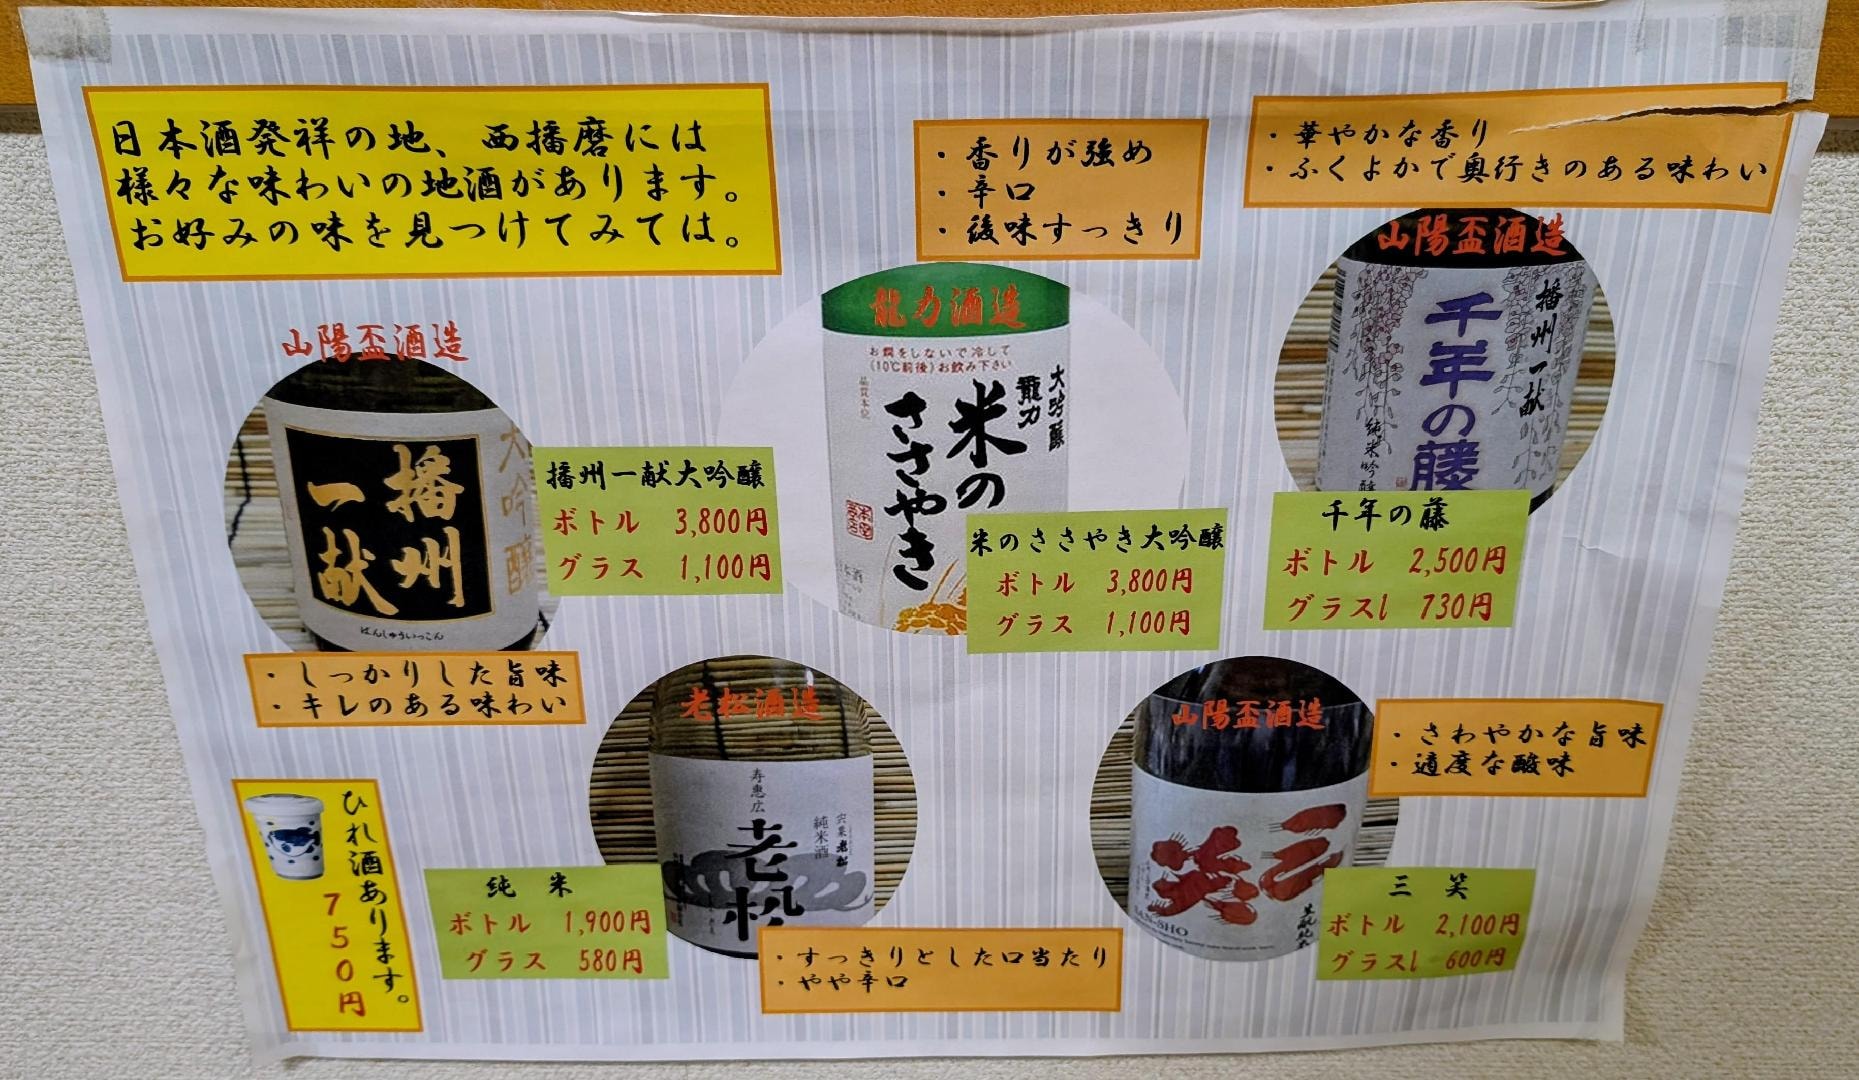 日本酒発祥の地、西播磨には
様々な味わいの地酒があります。
お好みの味を見つけてみては。
・香りが強め
・辛口
・後味すっきり
・華やかな香り
・ふくよかで奥行きのある味わい
山陽盃酒造
播州
一献
大吟醸
ばんしゅういっこん
播州一献大吟醸
ボトル 3,800円
グラス 1,100円
・しっかりした旨味
・キレのある味わい
龍力酒造
お燗をしないで冷して
(10℃前後)お飲み下さい
品質本位
大吟醸
龍力
米の
ささやき
米のささやき大吟醸
ボトル 3,800円
グラス 1,100円
山陽盃酒造
播州一献
千年の藤
純米吟醸
千年の藤
ボトル 2,500円
グラスl 730円
老松酒造
寿恵広
老松
純米酒
宍粟 老松
純 米
ボトル 1,900円
グラス 580円
・すっきりとした口当たり
・やや辛口
山陽盃酒造
三笑
SAN-SHO
生酛純米
・さわやかな旨味
・適度な酸味
三 笑
ボトル 2,100円
グラスl 600円
ひれ酒あります。
750円